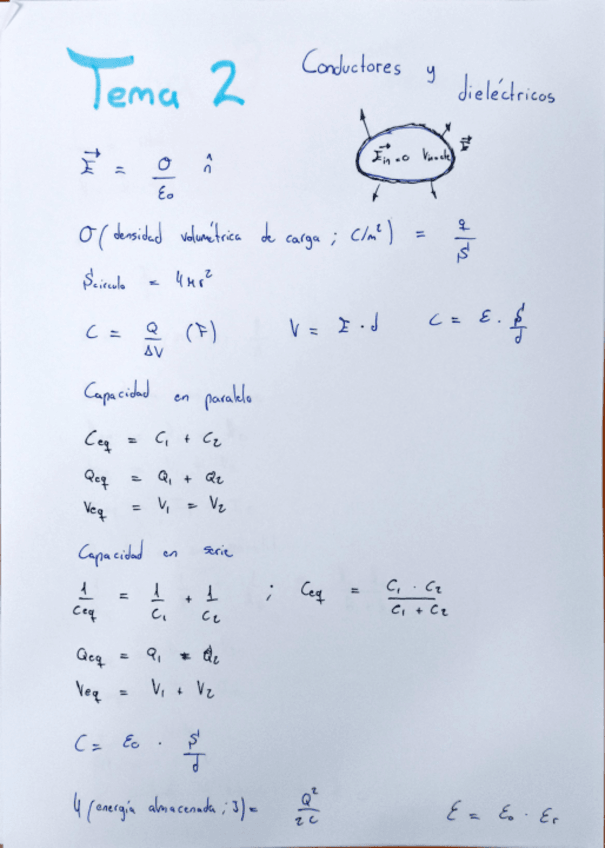 Tema 2 Conductores y dieléctricos
E⃗in = 0 V=cte E⃗
E⃗ = σ/ε₀ n̂
σ (densidad volumétrica de carga ; C/m²) = q/S
Scírculo = 4πr²
C = Q/ΔV (F) V = E · d C = ε · S/d
Capacidad en paralelo
Ceq = C₁ + C₂
Qeq = Q₁ + Q₂
Veq = V₁ = V₂
Capacidad en serie
1/Ceq = 1/C₁ + 1/C₂ ; Ceq = C₁ · C₂/C₁ + C₂
Qeq = Q₁ = Q₂
Veq = V₁ + V₂
C = ε₀ · S/d
U (energía almacenada ; J) = Q²/2C ε = ε₀ · εr